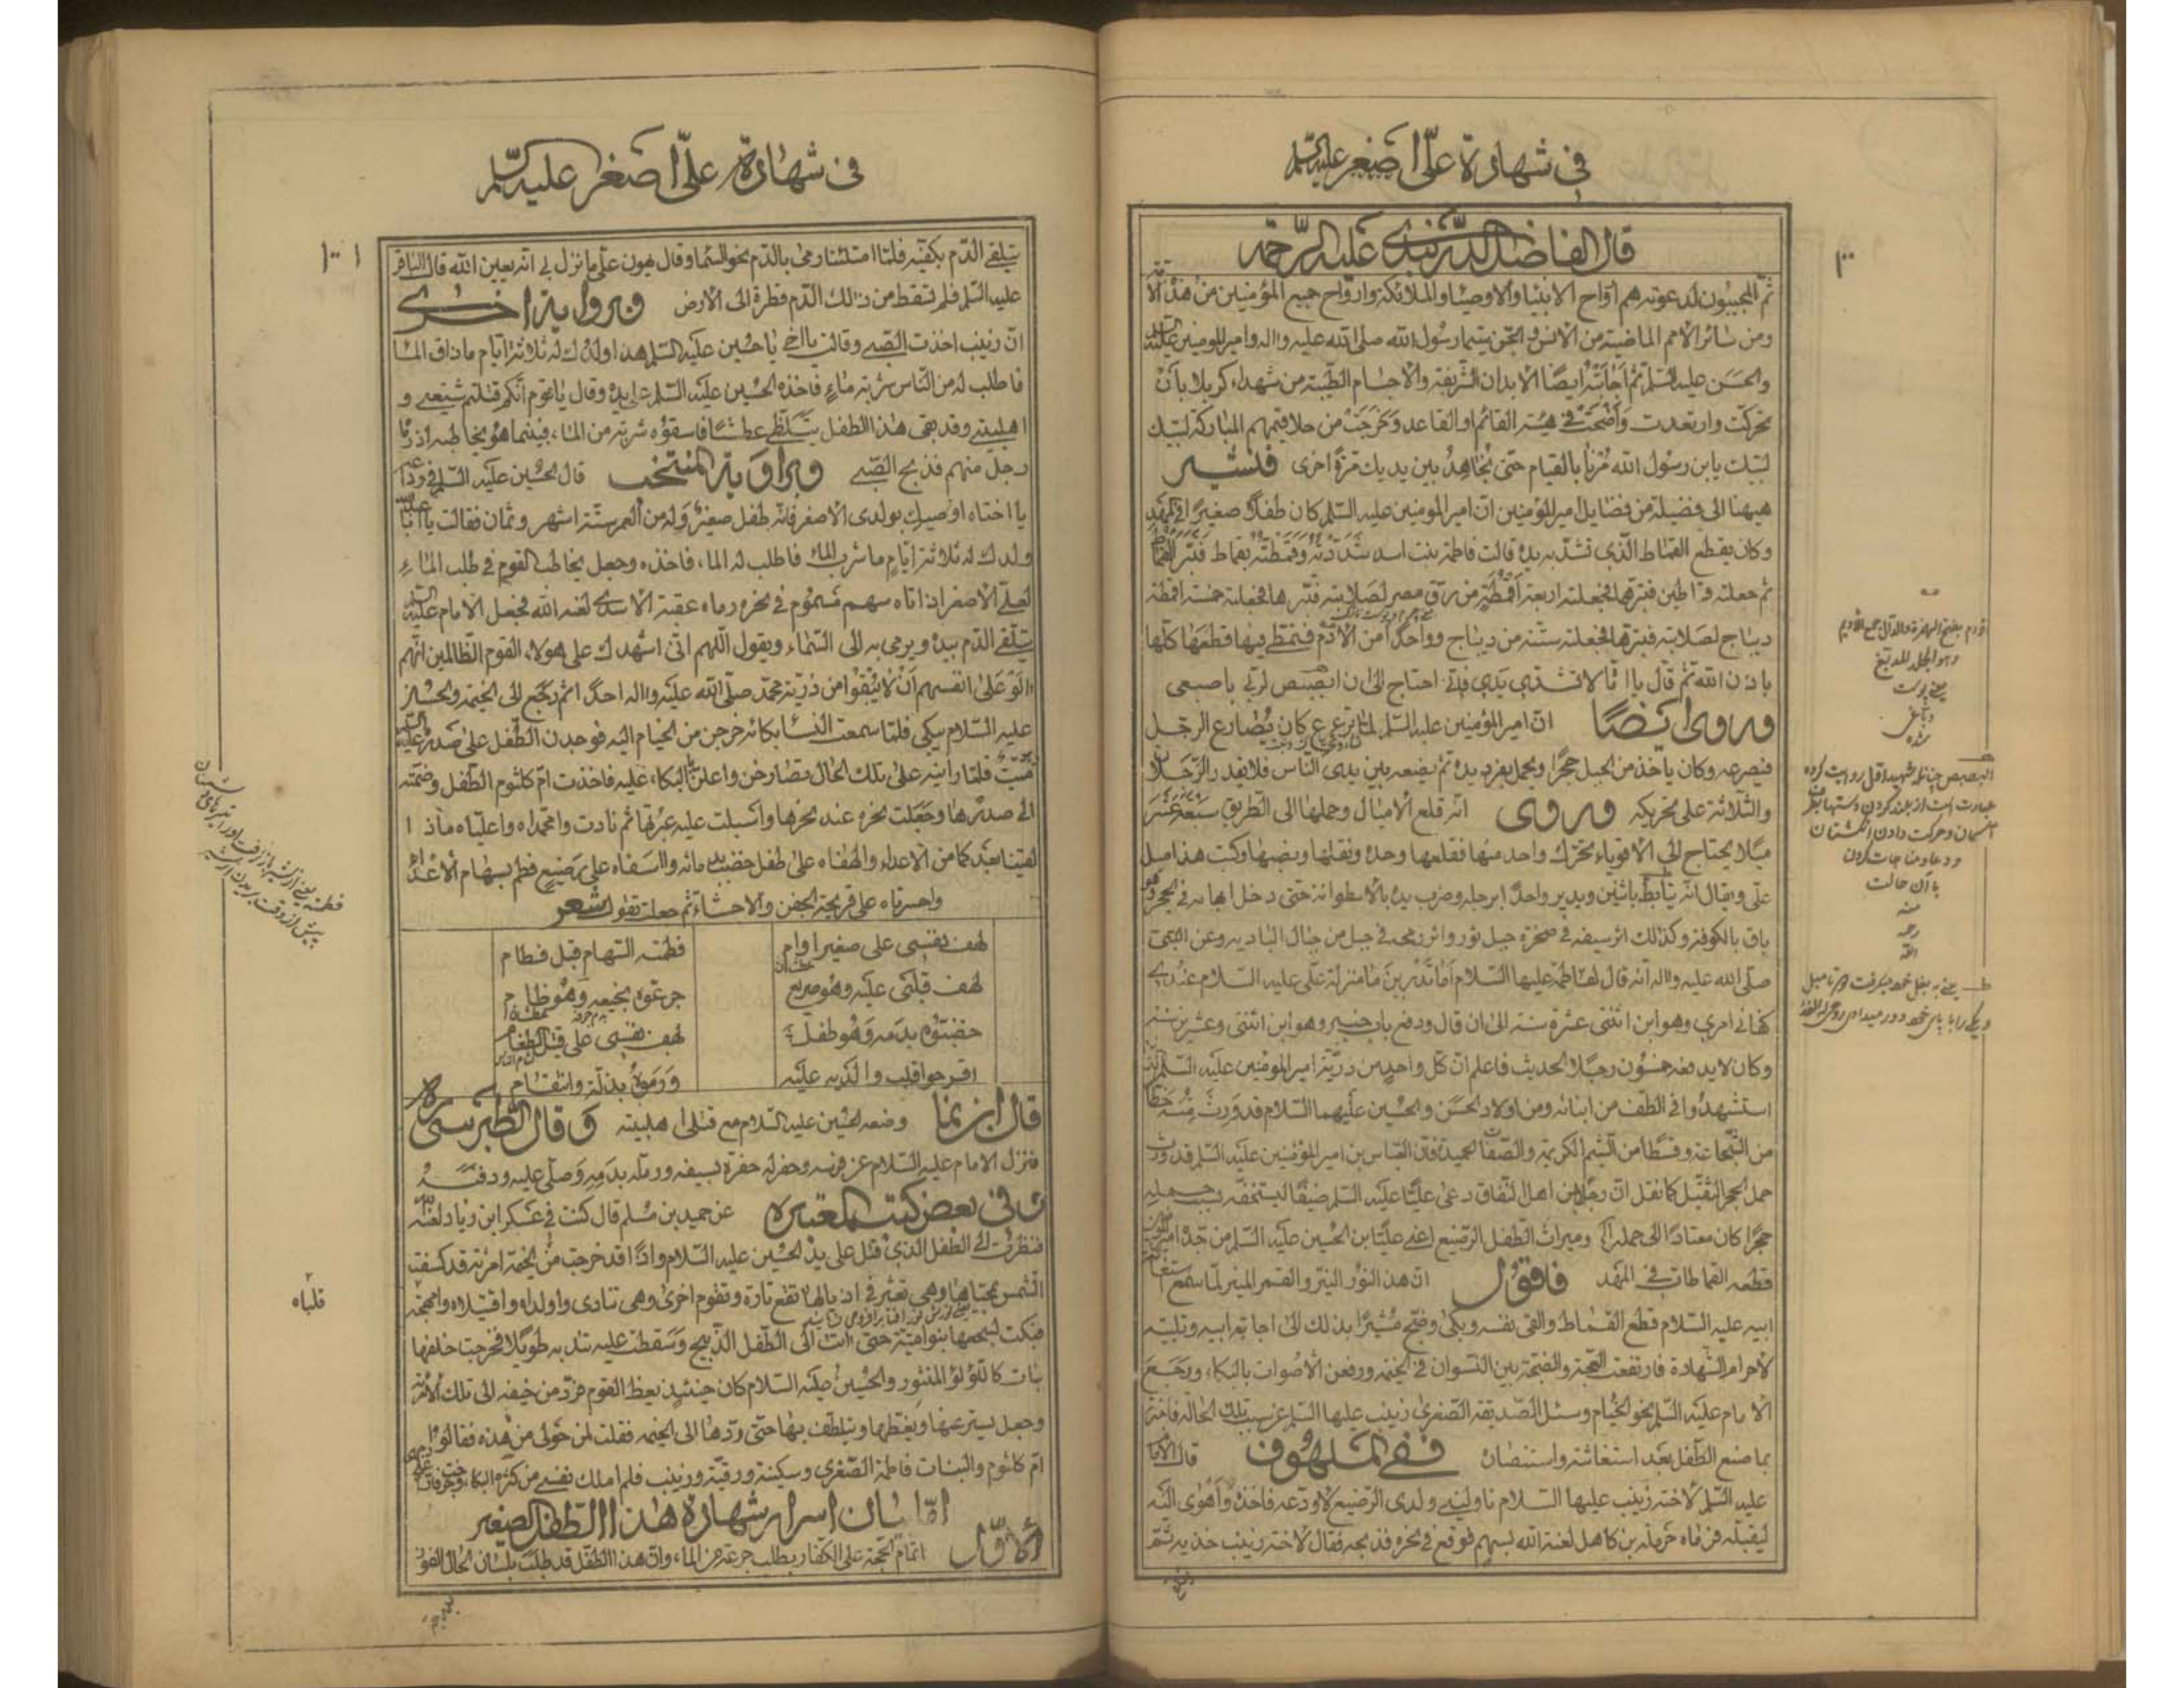 فی شهادة علیّ اصغر علیه السّلم
۱۰۰
قال الفاضل الدّربندی علیه الرّحمة
ثمّ المجیبون لدعوته هم ارواح الانبیا والاوصیا والملائکة وارواح جمیع المؤمنین من هذه الا
ومن سائر الامم الماضیة من الانس والجنّ سیّما رسول الله صلی الله علیه واله وامیر المومنین علیه السلم
والحسن علیه السّلم ثمّ اجابته ایضًا الابدان الشّریفة والاجسام الطّیبة من شهداء کربلا بأن
تحرکت وارتعدت واضحت فی هیئة القائم او القاعد وخرجت من حلاقیمهم المبارکة لبّیك
لبّیك یابن رسول الله مُرنا بالقیام حتی نجاهد بین یدیك مرّة اخری فلنشیر
هیهنا الی فضیلة من فضایل امیر المؤمنین انّ امیر المومنین علیه السّلم کان طفلًا صغیرًا فی المهد
وکان یقطع القماط الّذی تشدّ به یده قالت فاطمة بنت اسد شددته وقمطته بقماط فبتر القماط
ثم جعلته قماطین فبترهما فجعلته اربعة اقمطة من رقّ مصر لصلابته فبترها فجعلته خمسة اقمطة
دیباج لصلابته فبترها فجعلته ستّة من دیباج وواحدًا من الادم فتمطّی فیها فقطعها کلّها
باذن الله ثمّ قال یا امّا لا تشدّی یدی فانّی احتاج الی ان ابصبص لربّی باصبعی
وروی ایضًا انّ امیر المؤمنین علیه السّلم لمّا ترعرع کان یُصارع الرجل
فیصرعه وکان یاخذ من الجبل حجرًا ویحمل بفرد یده ثم یضعه بین یدی النّاس فلا یقدر الرّجل
والثّلاثة علی تحریکه وروی انّه قلع الامیال وحملها الی الطّریق سبعة عشر
میلًا یحتاج الی الاقویاء تحرّك واحد منها فقلعها وحده ونقلها ونصبها وکتب هذا میل
علی ویقال انّه یتأبّط باثنین ویدیر واحدًا برجله وضرب یده بالاسطوانة حتّی دخل ابهامه فی الحجر وهو
باق بالکوفة وکذالك اثر سیفه فی صخرة جبل ثور واثر رمحه فی جبل من جبال البادیة وعن النّبیّ
صلّی الله علیه واله انّه قال لفاطمة علیها السّلام اما تدرین ما منزلة علی علیه السّلام عندی
کفانی امری وهو ابن اثنتی عشرة سنة الی ان قال ودفع باب خیبر وهو ابن اثنتی وعشرین سنة
وکان لا یدفعه خمسون رجلًا الحدیث فاعلم انّ کلّ واحد من ذرّیة امیر المؤمنین علیه السّلم الذین
استشهدوا فی الطّف من ابنائه ومن اولاد الحسن والحسین علیهما السّلام قد ورث منه حظًّا
من الشّجاعة وقسطًا من الشّیم الکریمة والصّفات الحمیدة فانّ العبّاس بن امیر المؤمنین علیه السّلم قد ورث
حمل الحجر الثّقیل کما نقل انّ رجلًا من اهل النّفاق دعی علیًّا علیه السّلم ضیفًا
حجرًا کان معتادًا الی حمله ومیراث الطّفل الرّضیع اعنی علیًّا بن الحسین علیه السّلم من جدّه امیر المؤمنین
قطعه القماطات فی المهد فاقول انّ هذا النور النیّر والقمر المنیر لمّا سمع استغاثة
ابیه علیه السّلام قطع القماط والقی نفسه وبکی وضجّ مُشیرًا بذلك الی اجابة ابیه وتلبیته
لاحرام الشّهادة فارتفعت الضجّة والصّیحة بین النّسوان فی الخیمة ورفعن الاصوات بالبکاء ورجع
الامام علیه السّلم نحو الخیام وسئل الصّدیقة الصّغری زینب علیها السّلم عن سبب تلك الحالة فاخبرته
بما صنع الطّفل بعد استغاثته واستنصاره ففی الملهوف قال الاما
علیه السّلم لاخته زینب علیها السّلام ناولینی ولدی الرّضیع لاودّعه فاخذه واهوی الیه
لیقبّله فرماه حرملة بن کاهل لعنة الله بسهم فوقع فی نحره فذبحه فقال لاخته زینب خذیه ثمّ
ادم بفتح الهمزة والدال جمع الادیم
وهو الجلد المدبغ
یعنی پوست
دباغی
شده
البصبص چنانچه شهید اول روایت کرده
عبارت است از بلند کردن دستها بطرف
آسمان وحرکت دادن انگشتان
ودعا ومناجات کردن
با آن حالت
منه
رحمه
الله
فی شهادة علیّ اصغر علیه السّلم
۱۰۱
یتلقی الدّم بکفّیه فلمّا امتلئتا رمی بالدّم نحو السّما وقال هوّن علیّ ما نزل بی انّه بعین الله قال الباقر
علیه السّلم فلم تسقط من ذالك الدّم قطرة الی الارض وفی روایة اخری
انّ زینب اخذت الصّبی وقالت یا اخی یا حسین علیه السّلم هذا ولدك له ثلاثة ایّام ما ذاق المآ
فاطلب له من النّاس شربة ماء فاخذه الحسین علیه السّلم علی یده وقال یا قوم انّکم قتلتم شیعتی و
اهلبیتی وقد بقی هذا الطفل یتلظّی عطشًا فاسقوه شربة من الماء فبینما هو یخاطبهم اذ رماه
رجل منهم فذبح الصّبی وبروایة المنتخب قال الحسین علیه السّلم فی وداعه
یا اختاه اوصیك بولدی الاصغر فانّه طفل صغیر وله من العمر ستّة اشهر وثمان فقالت یا ابا عبد الله
ولدك له ثلاثة ایّام ما شرب الماء فاطلب له الماء فاخذه وجعل یخاطب القوم فی طلب الماء
لعلیّ الاصغر اذ اتاه سهم مسموم فی نحره رماه عقبة الاسدی لعنه الله فجعل الامام علیه السلم
یتلقّی الدّم بیده ویرمی به الی السّماء ویقول اللّهم انّی اشهدك علی هولاء القوم الظّالمین انّهم
الوا علی انفسهم ان لا یبقوا من ذرّیة محمّد صلّی الله علیه واله احدًا ثم رجع الی الخیمة والحسین
علیه السّلام یبکی فلمّا سمعت النّسا بکائه خرجن من الخیام الیه فوجدن الطّفل علی صدره علیه السلم
میّت فلمّا راینه علی تلك الحال تصارخن واعلنّ بالبکاء علیه فاخذت امّ کلثوم الطّفل وضمّته
الی صدرها وجعلت نحره عند نحرها واسبلت علیه عبرتها ثم نادت وا محمّداه وا علیّاه ماذا
لقینا بعدکما من الاعداء والهفاه علی طفل خضب بدمائه وا اسفاه علی رضیع فطم بسهام الاعداء
واحسرتاه علی قریحة الجفن والاحشاء ثمّ جعلت تقول شعر
لهف نفسی علی صغیر اوام    فطمته السّهام قبل فطام
لهف قلبی علیه وهو صریع    جرعوه بخیعه وهو ظام
خضّبوه بدمه وهو طفل    لهف نفسی علی قتیل الطّغام
اقرحوا قلب والدیه علیه    ورموه بذلّة وانتقام
قال ابن نما وضعه الحسین علیه السّلام مع قتلی اهلبیته وقال الطّبرسی ره
فنزل الامام علیه السّلام عن فرسه وحفر له حفرة بسیفه ورمّله بدمه وصلّی علیه ودفنه
وفی بعض کتب المعتبره عن حمید بن مسلم قال کنت فی عسکر ابن زیاد لعنه الله
فنظرت الی الطّفل الّذی قتل علی ید الحسین علیه السّلام واذًا قد خرجت من الخیمة امرئة قد کسفت
الشّمس بمحیاها وهی تعثر فی اذیالها تقع تارة وتقوم اخری وهی تنادی واولداه واقتیلاه وا مهجة
قلباه
فبکت لسجعها بنو امیّة حتی اتت الی الطّفل الذّبیح وسقطت علیه تندبه طویلًا فخرجت خلفها
بنات کاللؤلؤ المنثور والحسین علیه السّلام کان حینئذ یعظ القوم فردّ من خیفه الی تلك الامرئة
وجعل یستر عنها ویغطّیها ویتلطّف بها حتّی ردّها الی الخیمة فقلت لمن حولی من هذه فقالوا
امّ کلثوم والبنات فاطمة الصّغری وسکینة ورقیّة وزینب فلم املك نفسی من کثرة البکاء
امّا بیان اسرار شهادة هذا الطّفل الصغیر
الاوّل اتمام الحجّة علی الکفّار بطلب جرعة من الماء وانّ هذا الطّفل قد طلب بلسان الحال الفوز